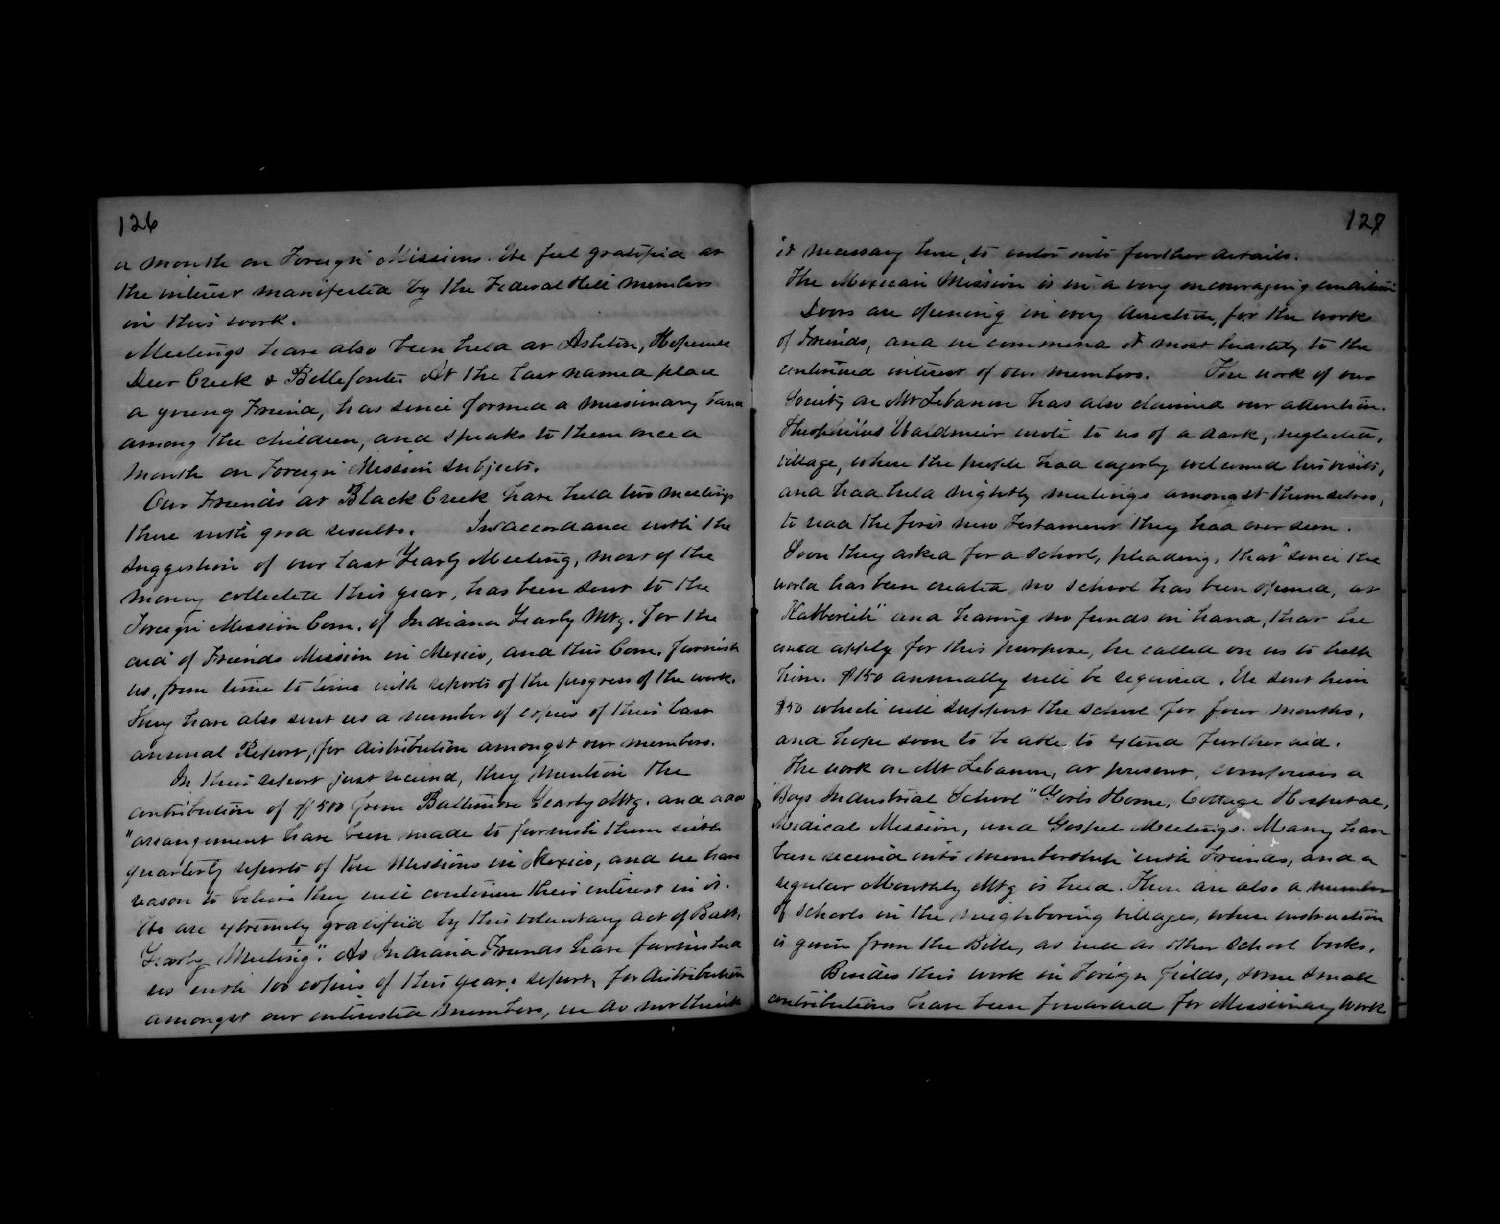 126
a month on Foreign Missions. We feel gratified at
the interest manifested by the Federal Hill members
in this work.
Meetings have also been held at Ashton, Hopewell
Deer Creek & Bellefonte. At the last named place
a young Friend, has since formed a missionary band
among the children, and speaks to them once a
month on Foreign Mission subjects.
Our Friends at Black Creek have held two meetings
there with good results. In accordance with the
suggestion of our last Yearly Meeting, most of the
money collected this year, has been sent to the
Foreign Mission Com. of Indiana Yearly Mtg. for the
aid of Friends Mission in Mexico, and this Com. furnish
us, from time to time with reports of the progress of the work.
They have also sent us a number of copies of their last
annual Report, for distribution amongst our members.
In their report just received, they mention the
contribution of $500 from Baltimore Yearly Mtg. and add
"arrangement have been made to furnish them with
quarterly reports of the Missions in Mexico, and we have
reason to believe they will continue their interest in it.
We are extremely gratified by this voluntary act of Balt.
Yearly Meeting". As Indiana Friends have furnished
us with 100 copies of this year's report, for distribution
amongst our interested members, we do not think
127
it necessary here, to enter into further details.
The Mexican Mission is in a very encouraging condition
Doors are opening in every direction, for the work
of Friends, and we commend it most heartily to the
continued interest of our members. The work of our
Society on Mt Lebanon has also claimed our attention.
Theophilus Waldmeir wrote to us of a dark, neglected,
village, where the people had eagerly welcomed his visits,
and had held nightly meetings amongst themselves,
to read the first new Testament they had ever seen.
Soon they asked for a school, pleading, that "since the
world has been created no school has been opened, at
" and having no funds in hand, that he
could apply for this purpose, he called on us to help
him. $150 annually will be required. We sent him
$50 which will support the school for four months,
and hope soon to be able to extend further aid.
The work on Mt Lebanon, at present, comprises a
Boys Industrial School "Girls Home, Cottage Hospital,
Medical Mission, and Gospel Meetings. Many have
been received into membership with Friends, and a
regular Monthly Mtg is held. There are also a number
of schools in the neighboring villages, where instruction
is given from the Bible, as well as other school books.
Besides this work in Foreign fields, some small
contributions have been forwarded for Missionary work